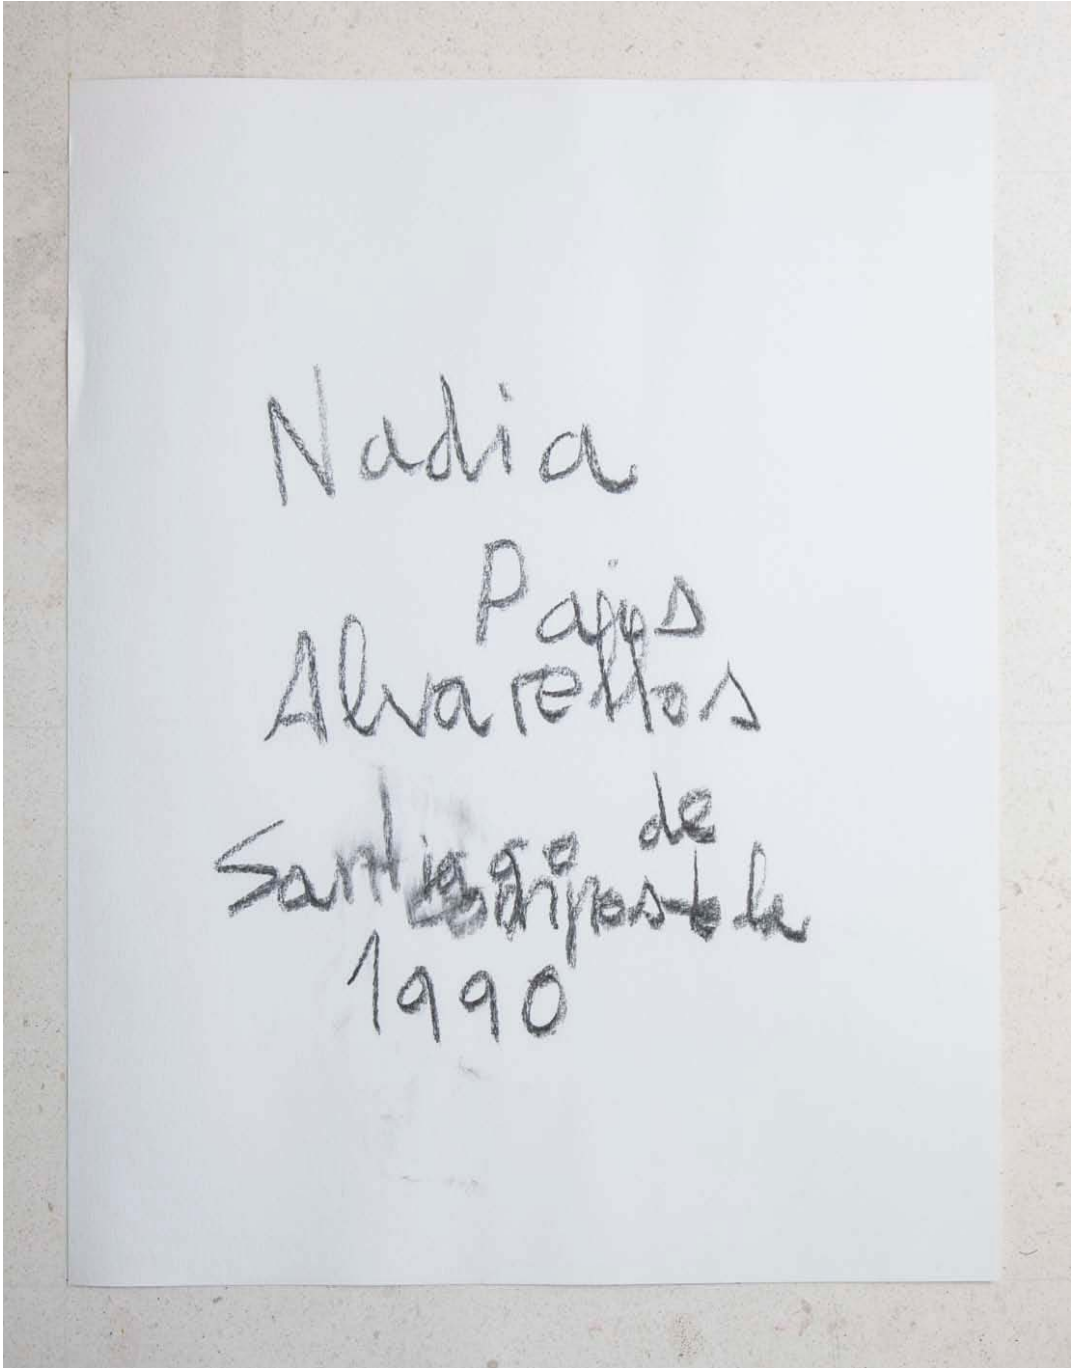 Nadia
Alvarellos
Santiago de
Compostela
1990